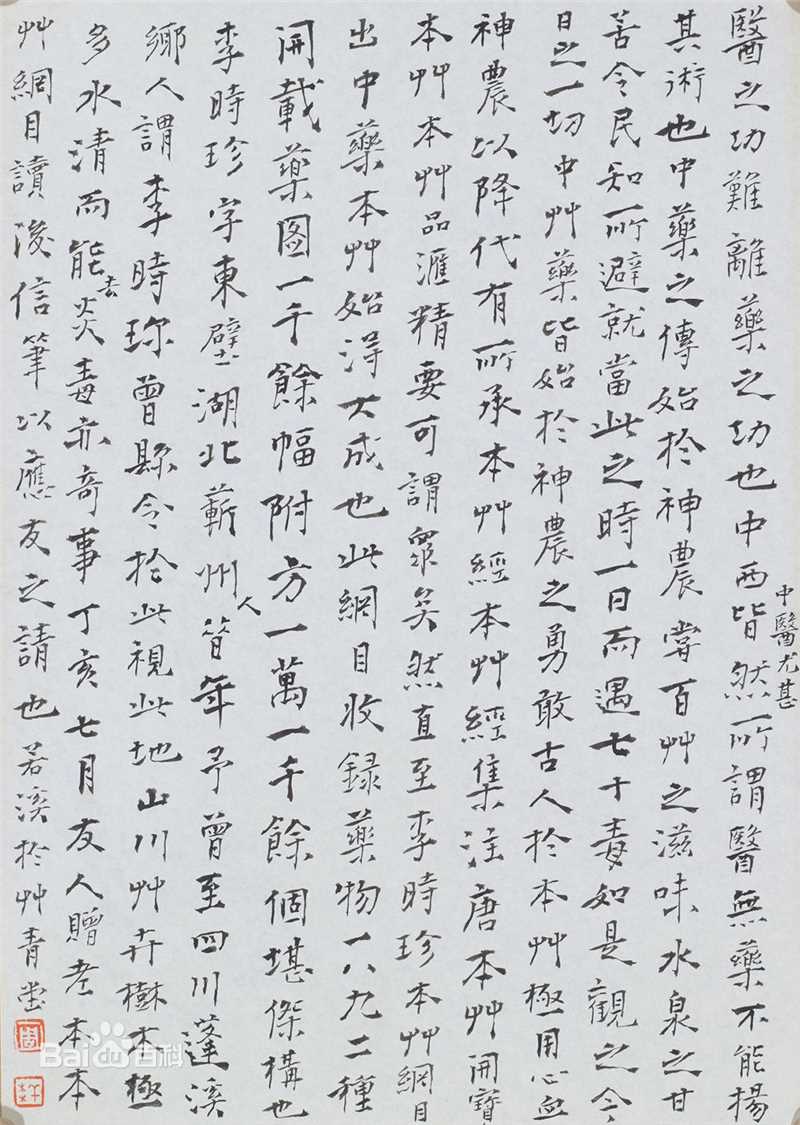 醫之功難離藥之功也中西皆然所謂醫無藥不能揚
中醫尤甚
其術也中藥之傳始於神農嘗百艸之滋味水泉之甘
苦令民知所避就當此之時一日而遇七十毒如是觀之今
日之一切中艸藥皆始於神農之勇敢古人於本艸極用心血
神農以降代有所承本艸經本艸經集注唐本艸開寶
本艸本艸品滙精要可謂眾矣然直至李時珍本艸綱目
出中藥本艸始得大成也此綱目收録藥物一八九二種
開載藥图一千餘幅附方一萬一千餘個堪傑構也
李時珍字東璧湖北蘄州人昔年予曾至四川蓬溪
鄉人謂李時珍曾縣令於此視此地山川艸卉樹木極
多水清而能去火毒亦奇事丁亥七月友人贈老本本
艸綱目讀後信筆以應友之請也若溪於艸青堂
Bai 百科